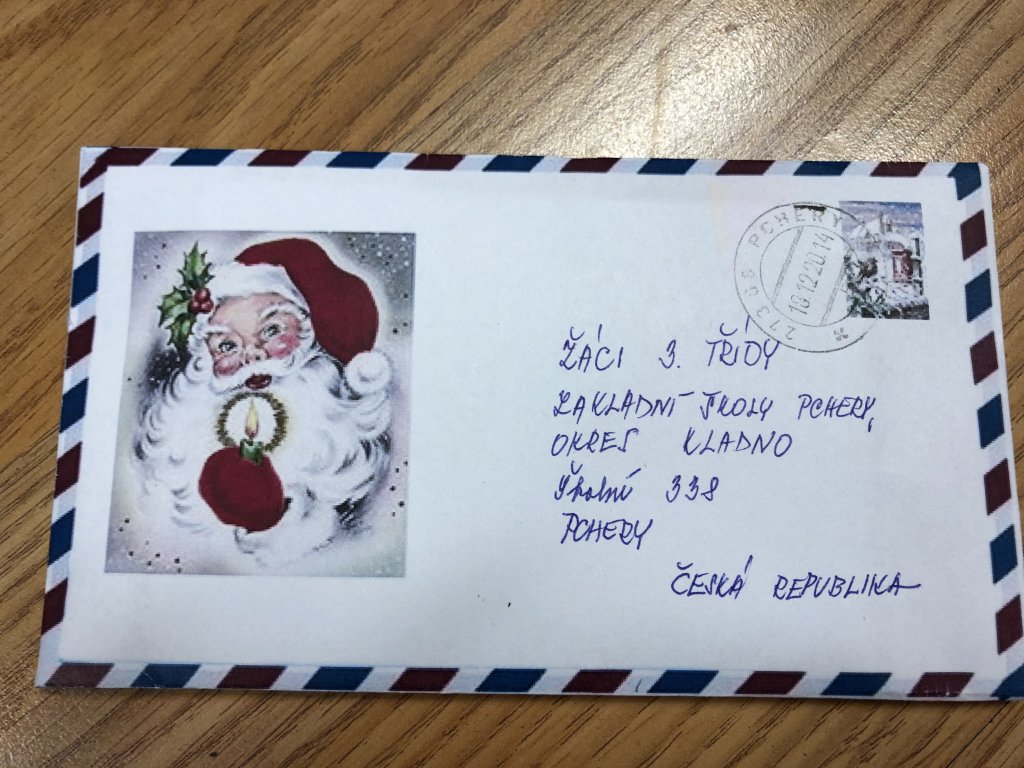 PCHERY
273 08
10.12.2014
ŽÁCI 3. TŘÍDY
ZÁKLADNÍ ŠKOLY PCHERY,
OKRES KLADNO
Školní 338
PCHERY
ČESKÁ REPUBLIKA